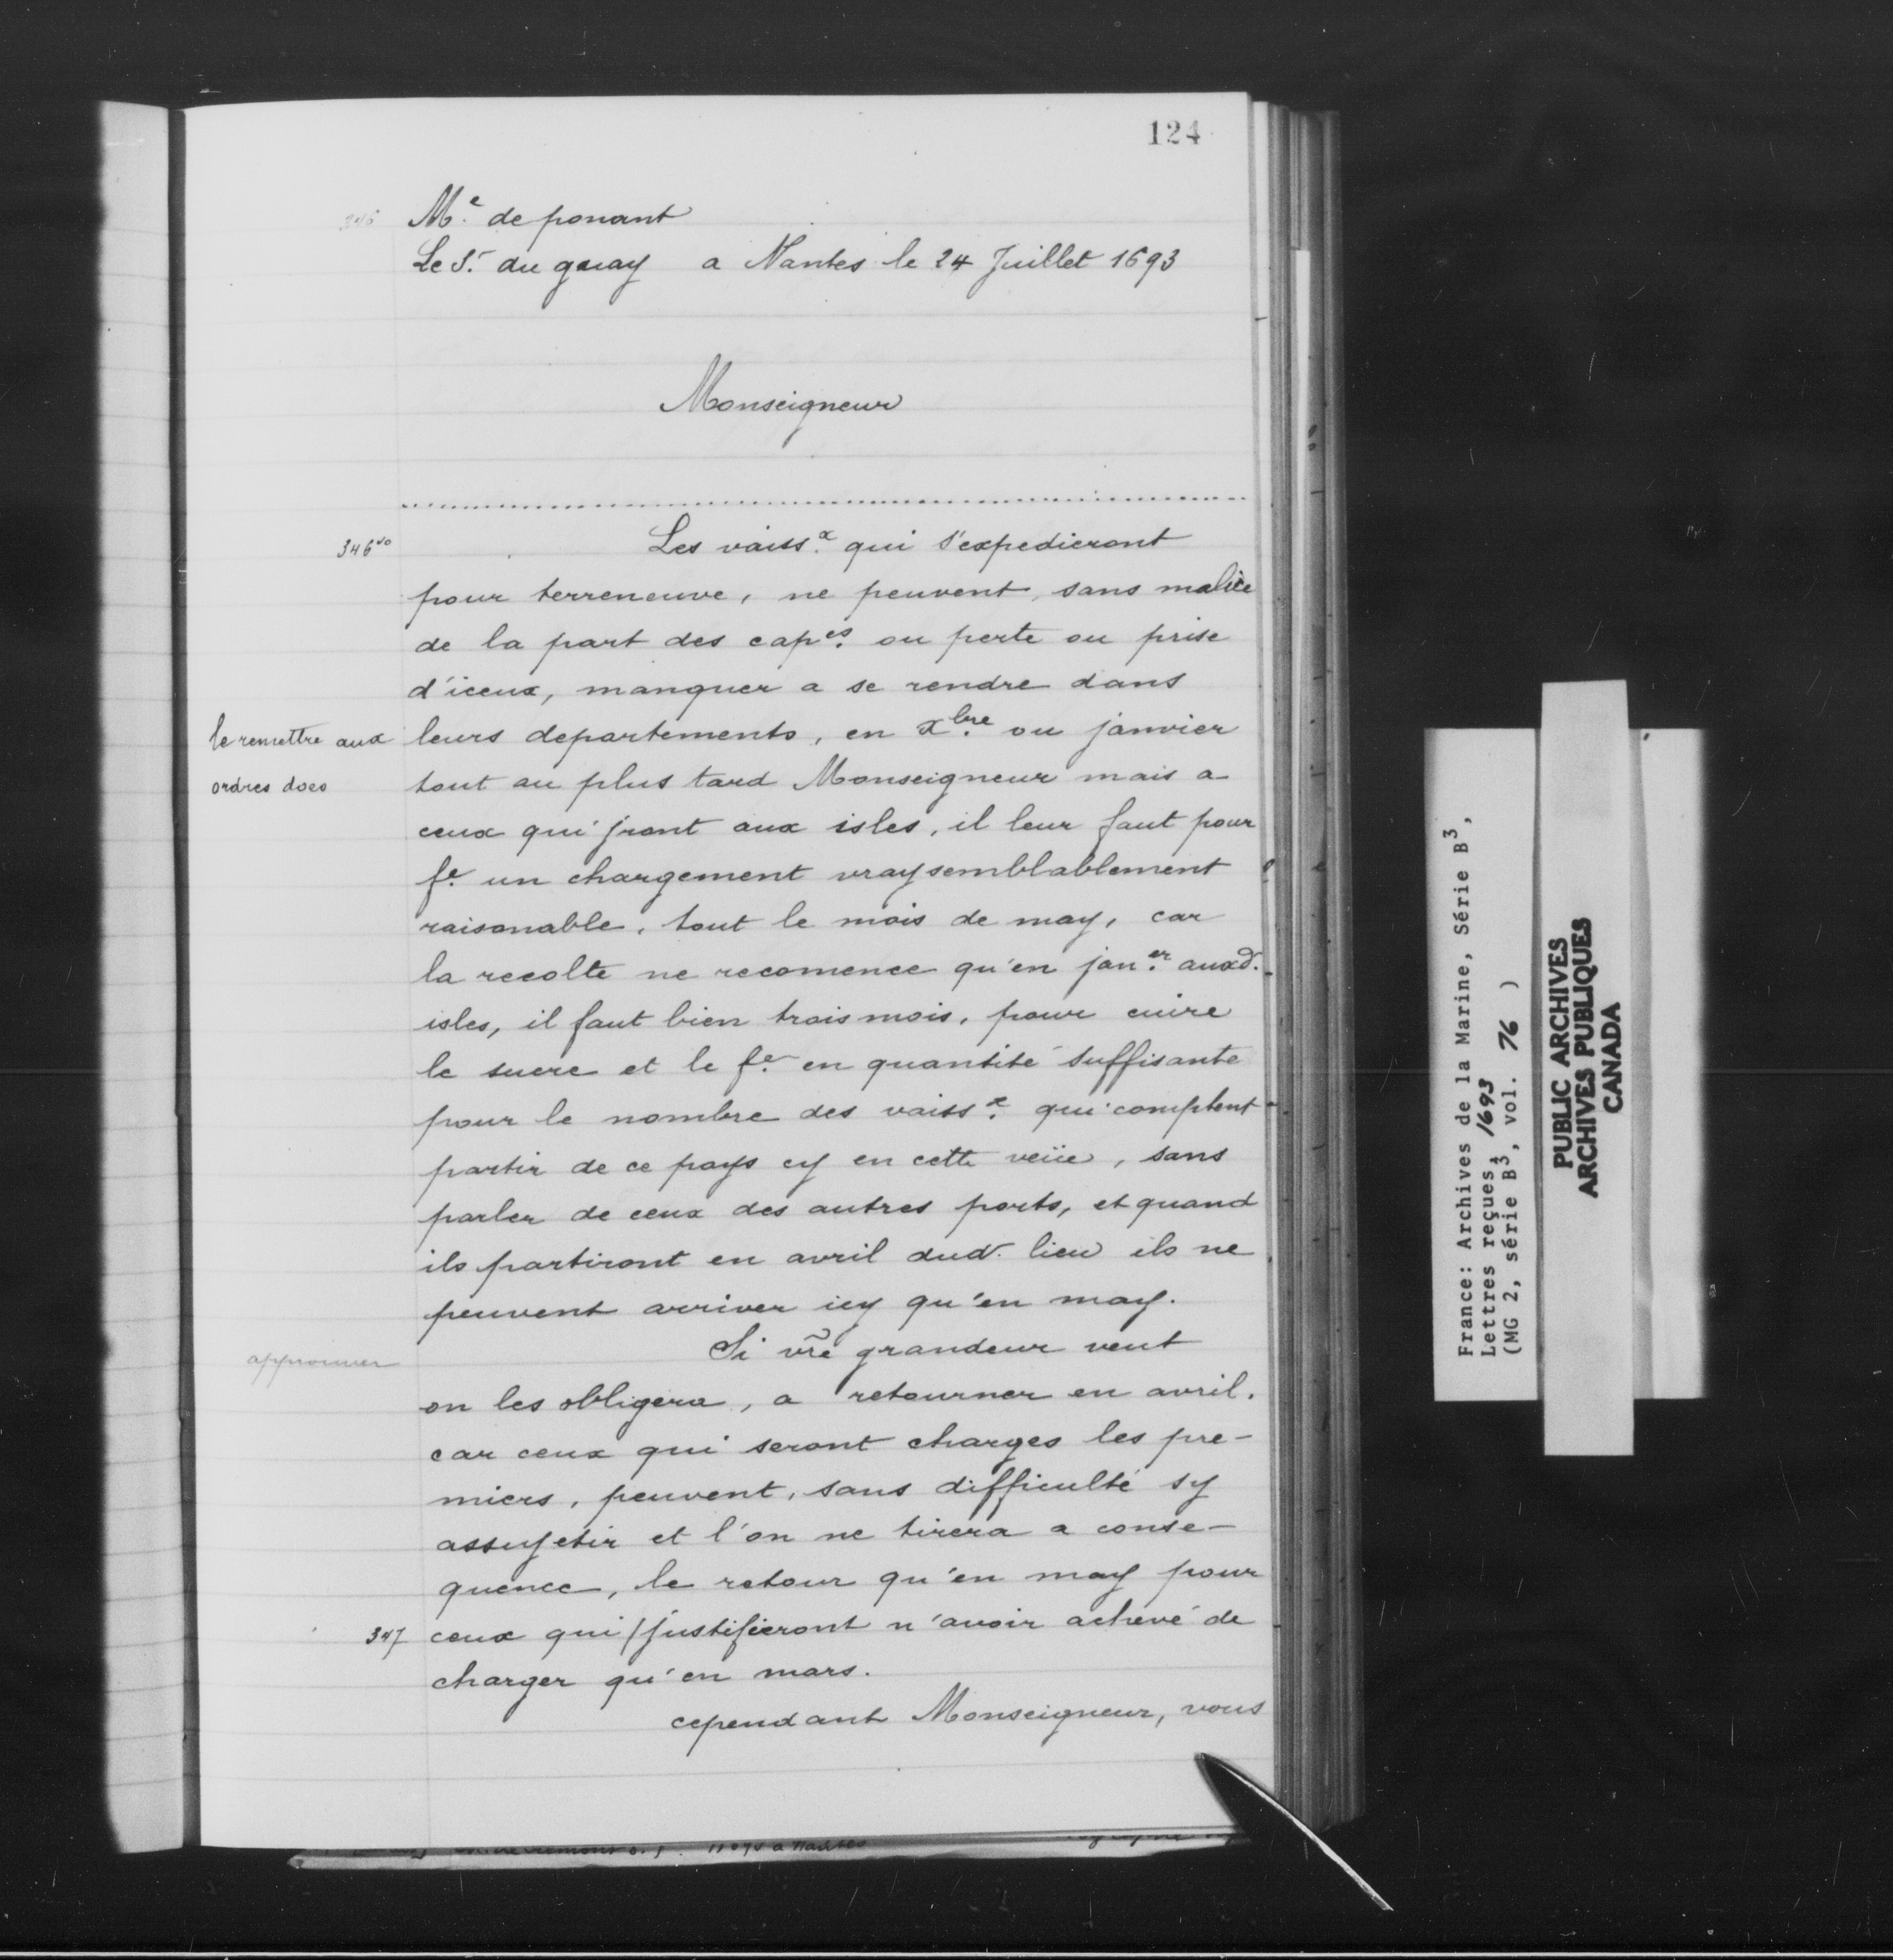 124
346 Mᵉ. de ponant
Le Sʳ. du guay a Nantes le 24 Juillet 1693
Monseigneur
346vo Les vaissˣ. qui s'expedieront
pour terreneuve, ne peuvent, sans malice
de la part des capᵉˢ. ou perte ou prise
d'iceux, manquer a se rendre dans
le remettre aux leurs departements, en xbre. ou janvier
ordres does tout au plus tard Monseigneur mais a
ceux qui jront aux isles, il leur faut pour
fᵉ. un chargement vraysemblablement
raisonable, tout le mois de may, car
la recolte ne recomence qu'en janᵉʳ. auxd.
isles, il faut bien trois mois, pour cuire
le sucre et le fᵉ. en quantité suffisante
pour le nombre des vaissˣ. qui comptent
partir de ce pays cy en cette veüe, sans
parler de ceux des autres ports, et quand
ils partiront en avril dud. lieu ils ne
peuvent arriver icy qu'en may.
approuver Si vr̃e grandeur veut
on les obligera, a retourner en avril.
car ceux qui seront charges les pre-
miers, peuvent, sans difficulté sy
assujetir et l'on ne tirera a conse-
quence, le retour qu'en may pour
347 ceux qui/justifieront n'avoir achevé de
charger qu'en mars.
cependant Monseigneur, vous
a Nantes
France: Archives de la Marine, Série B³,
Lettres reçues, 1693
(MG 2, série B³, vol. 76 )
PUBLIC ARCHIVES
ARCHIVES PUBLIQUES
CANADA